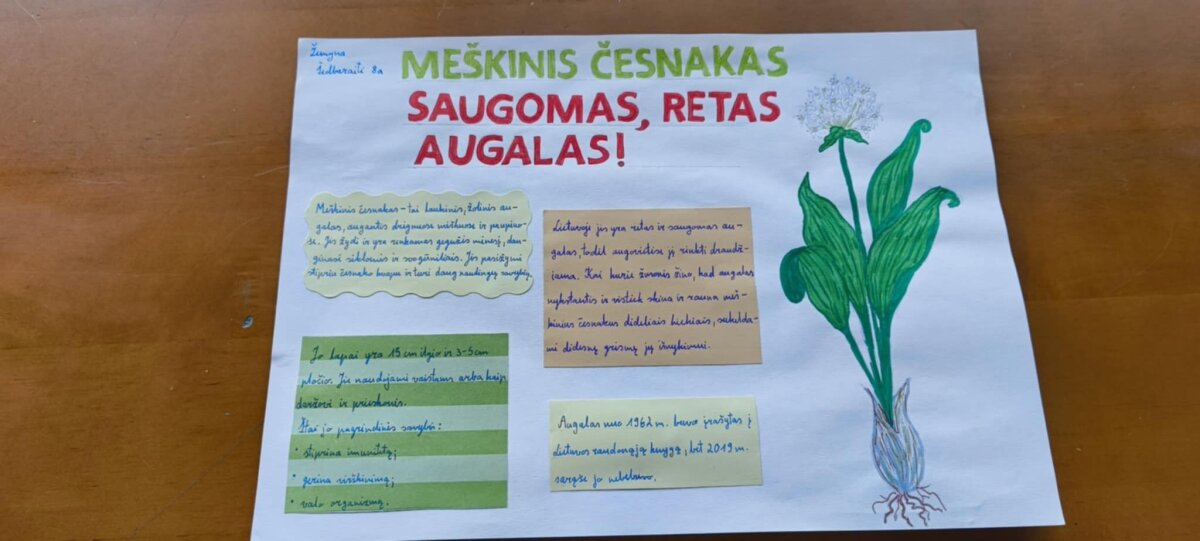 Žemyna
Ledberaitė 8a
MEŠKINIS ČESNAKAS
SAUGOMAS, RETAS
AUGALAS!
Meškinis česnakas - tai laukinis, žolinis au-
galas, augantis drėgnuose miškuose ir paupiuo-
se. Jis žydi ir yra renkamas gegužės mėnesį, dau-
ginasi sėklomis ir svogūnėliais. Jis pasižymi
stipriu česnako kvapu ir turi daug naudingų savybių.
Lietuvoje jis yra retas ir saugomas au-
galas, todėl augavietėse jį rinkti draudž-
iama. Kai kurie žmonės žino, kad augalas
nykstantis ir vistiek skina ir rauna meš-
kinius česnakus dideliais kiekiais, sukelda-
mi didesnę grėsmę jų išnykimui.
Jo lapai yra 15 cm ilgio ir 3-5 cm
pločio. Jie naudojami vaistams arba kaip
daržovė ir prieskonis.
Štai jo pagrindinės savybės:
· stiprina imunitetą;
· gerina virškinimą;
· valo organizmą.
Augalas nuo 1962 m. buvo įrašytas į
Lietuvos raudonąją knygą, bet 2019 m.
sąraše jo nebebuvo.